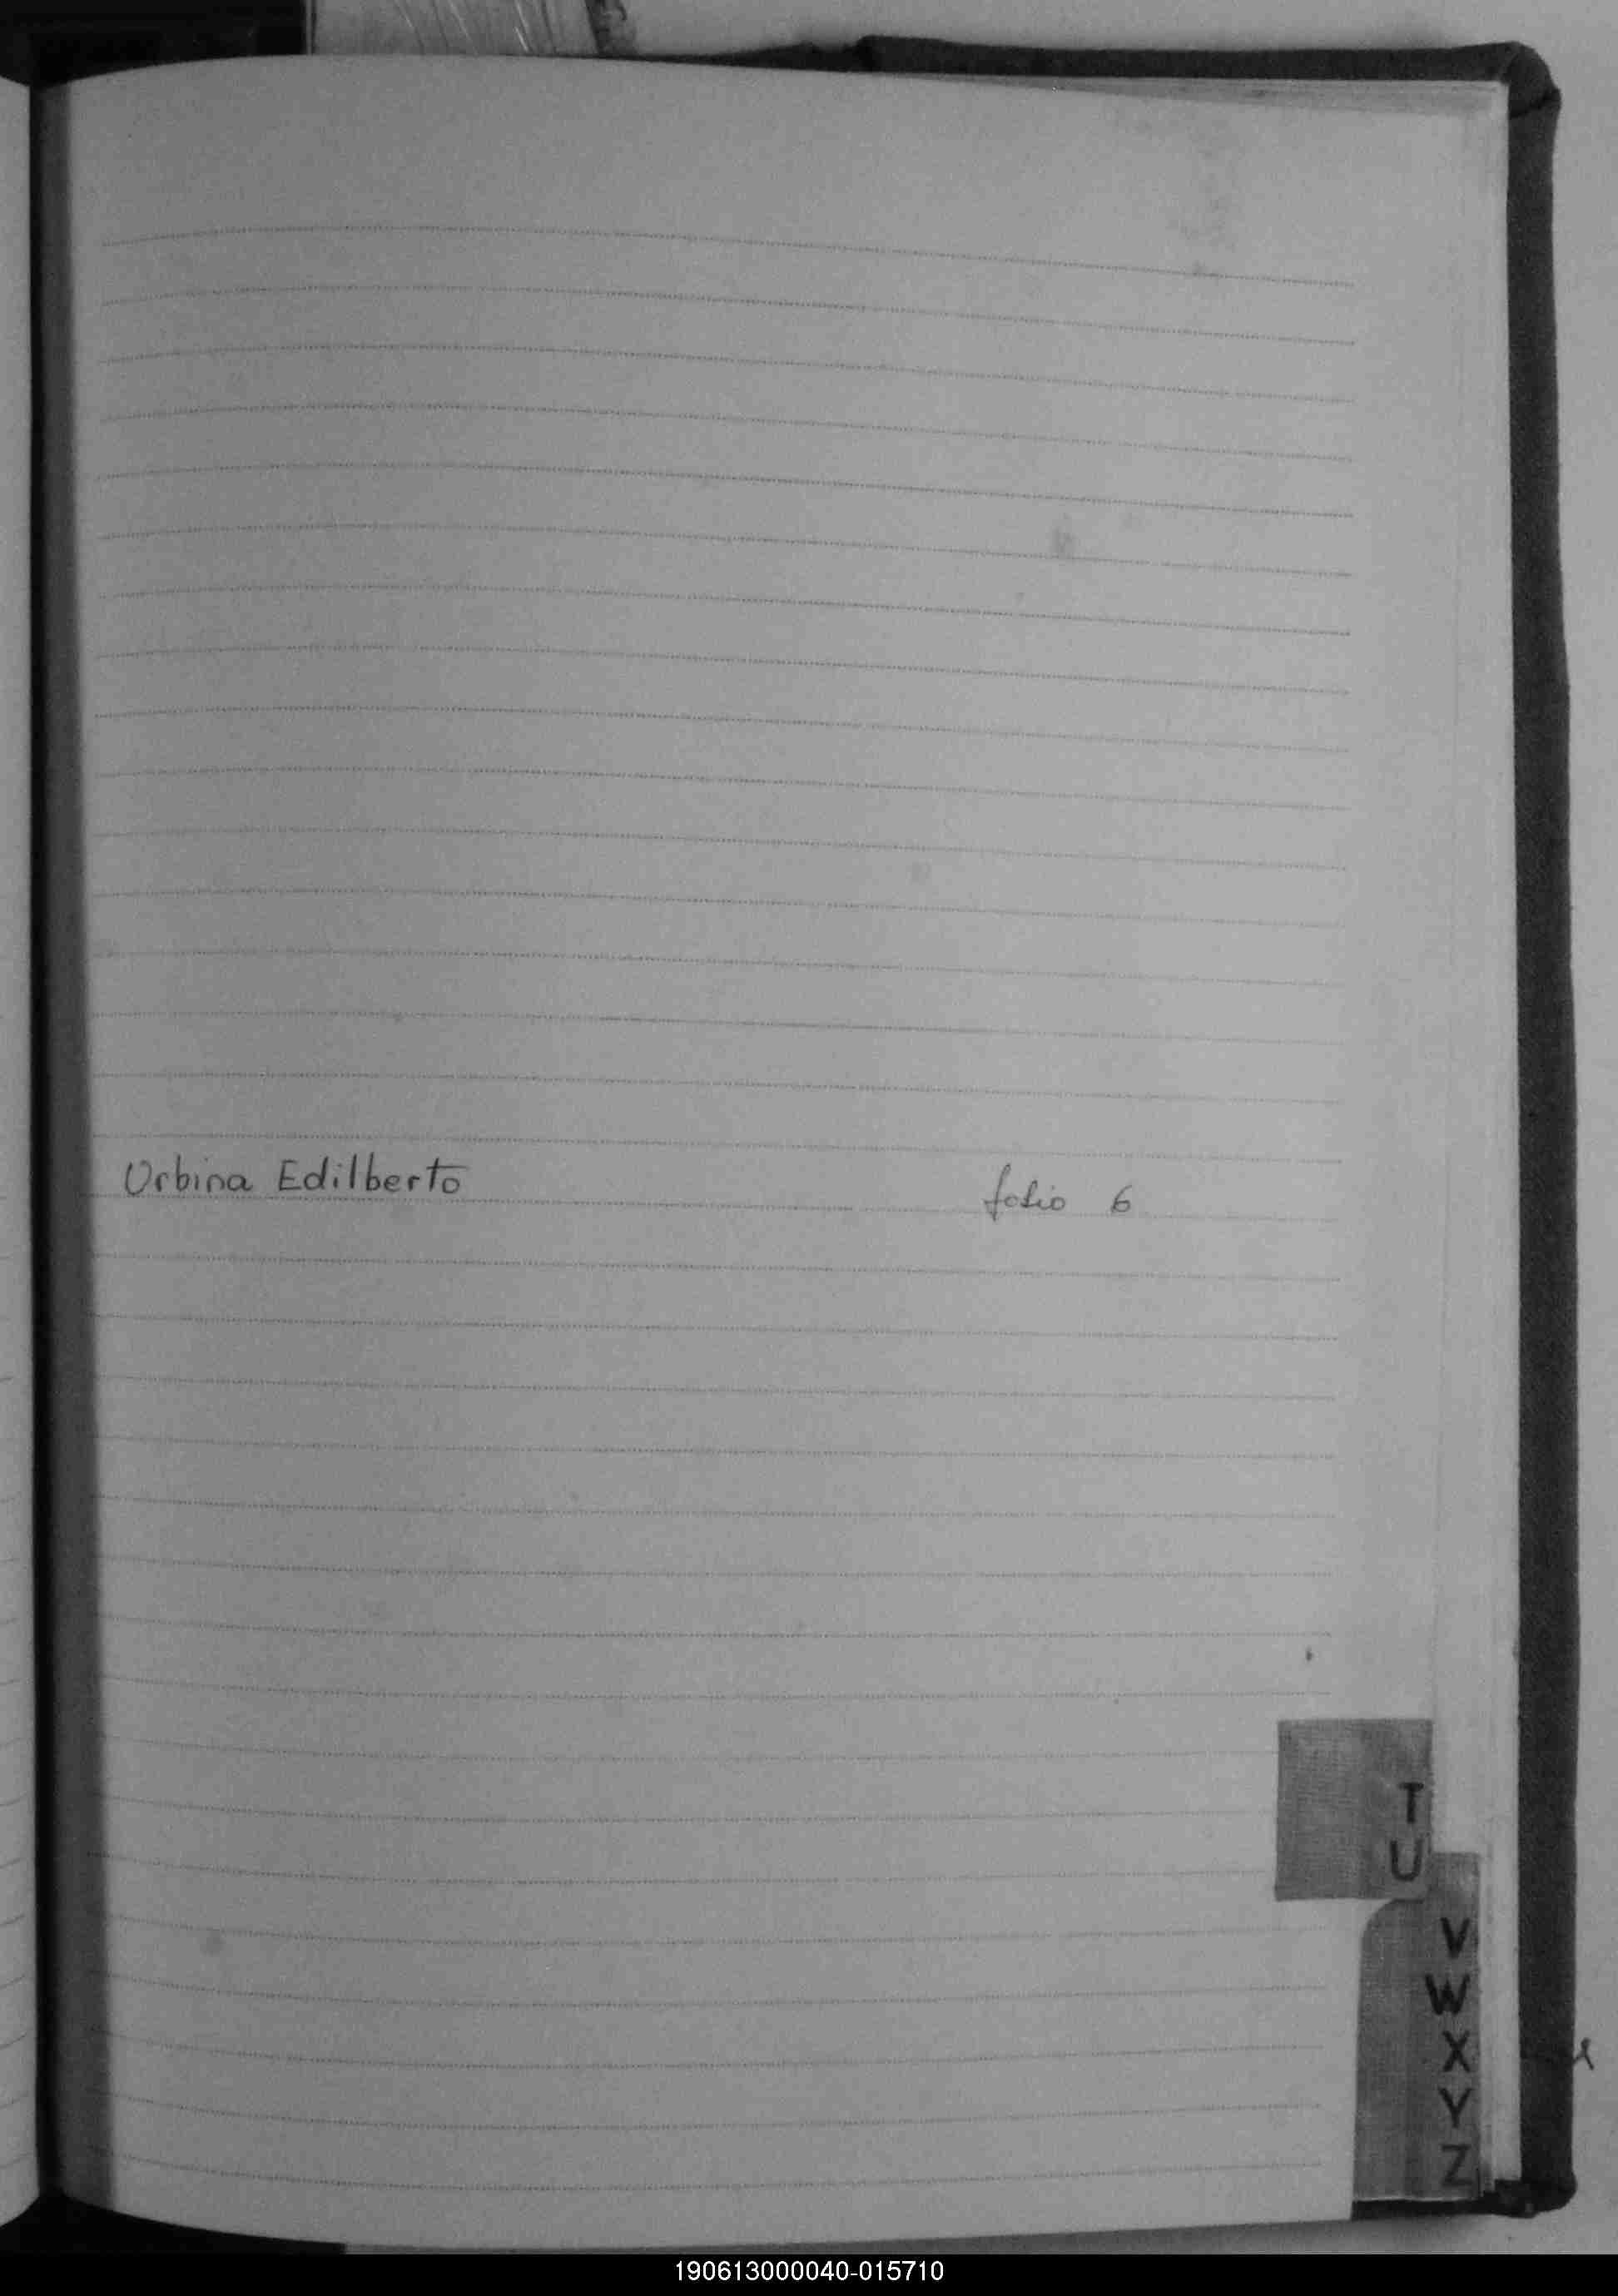 Urbina Edilberto folio 6
T
U
V
W
X
Y
Z
190613000040-015710